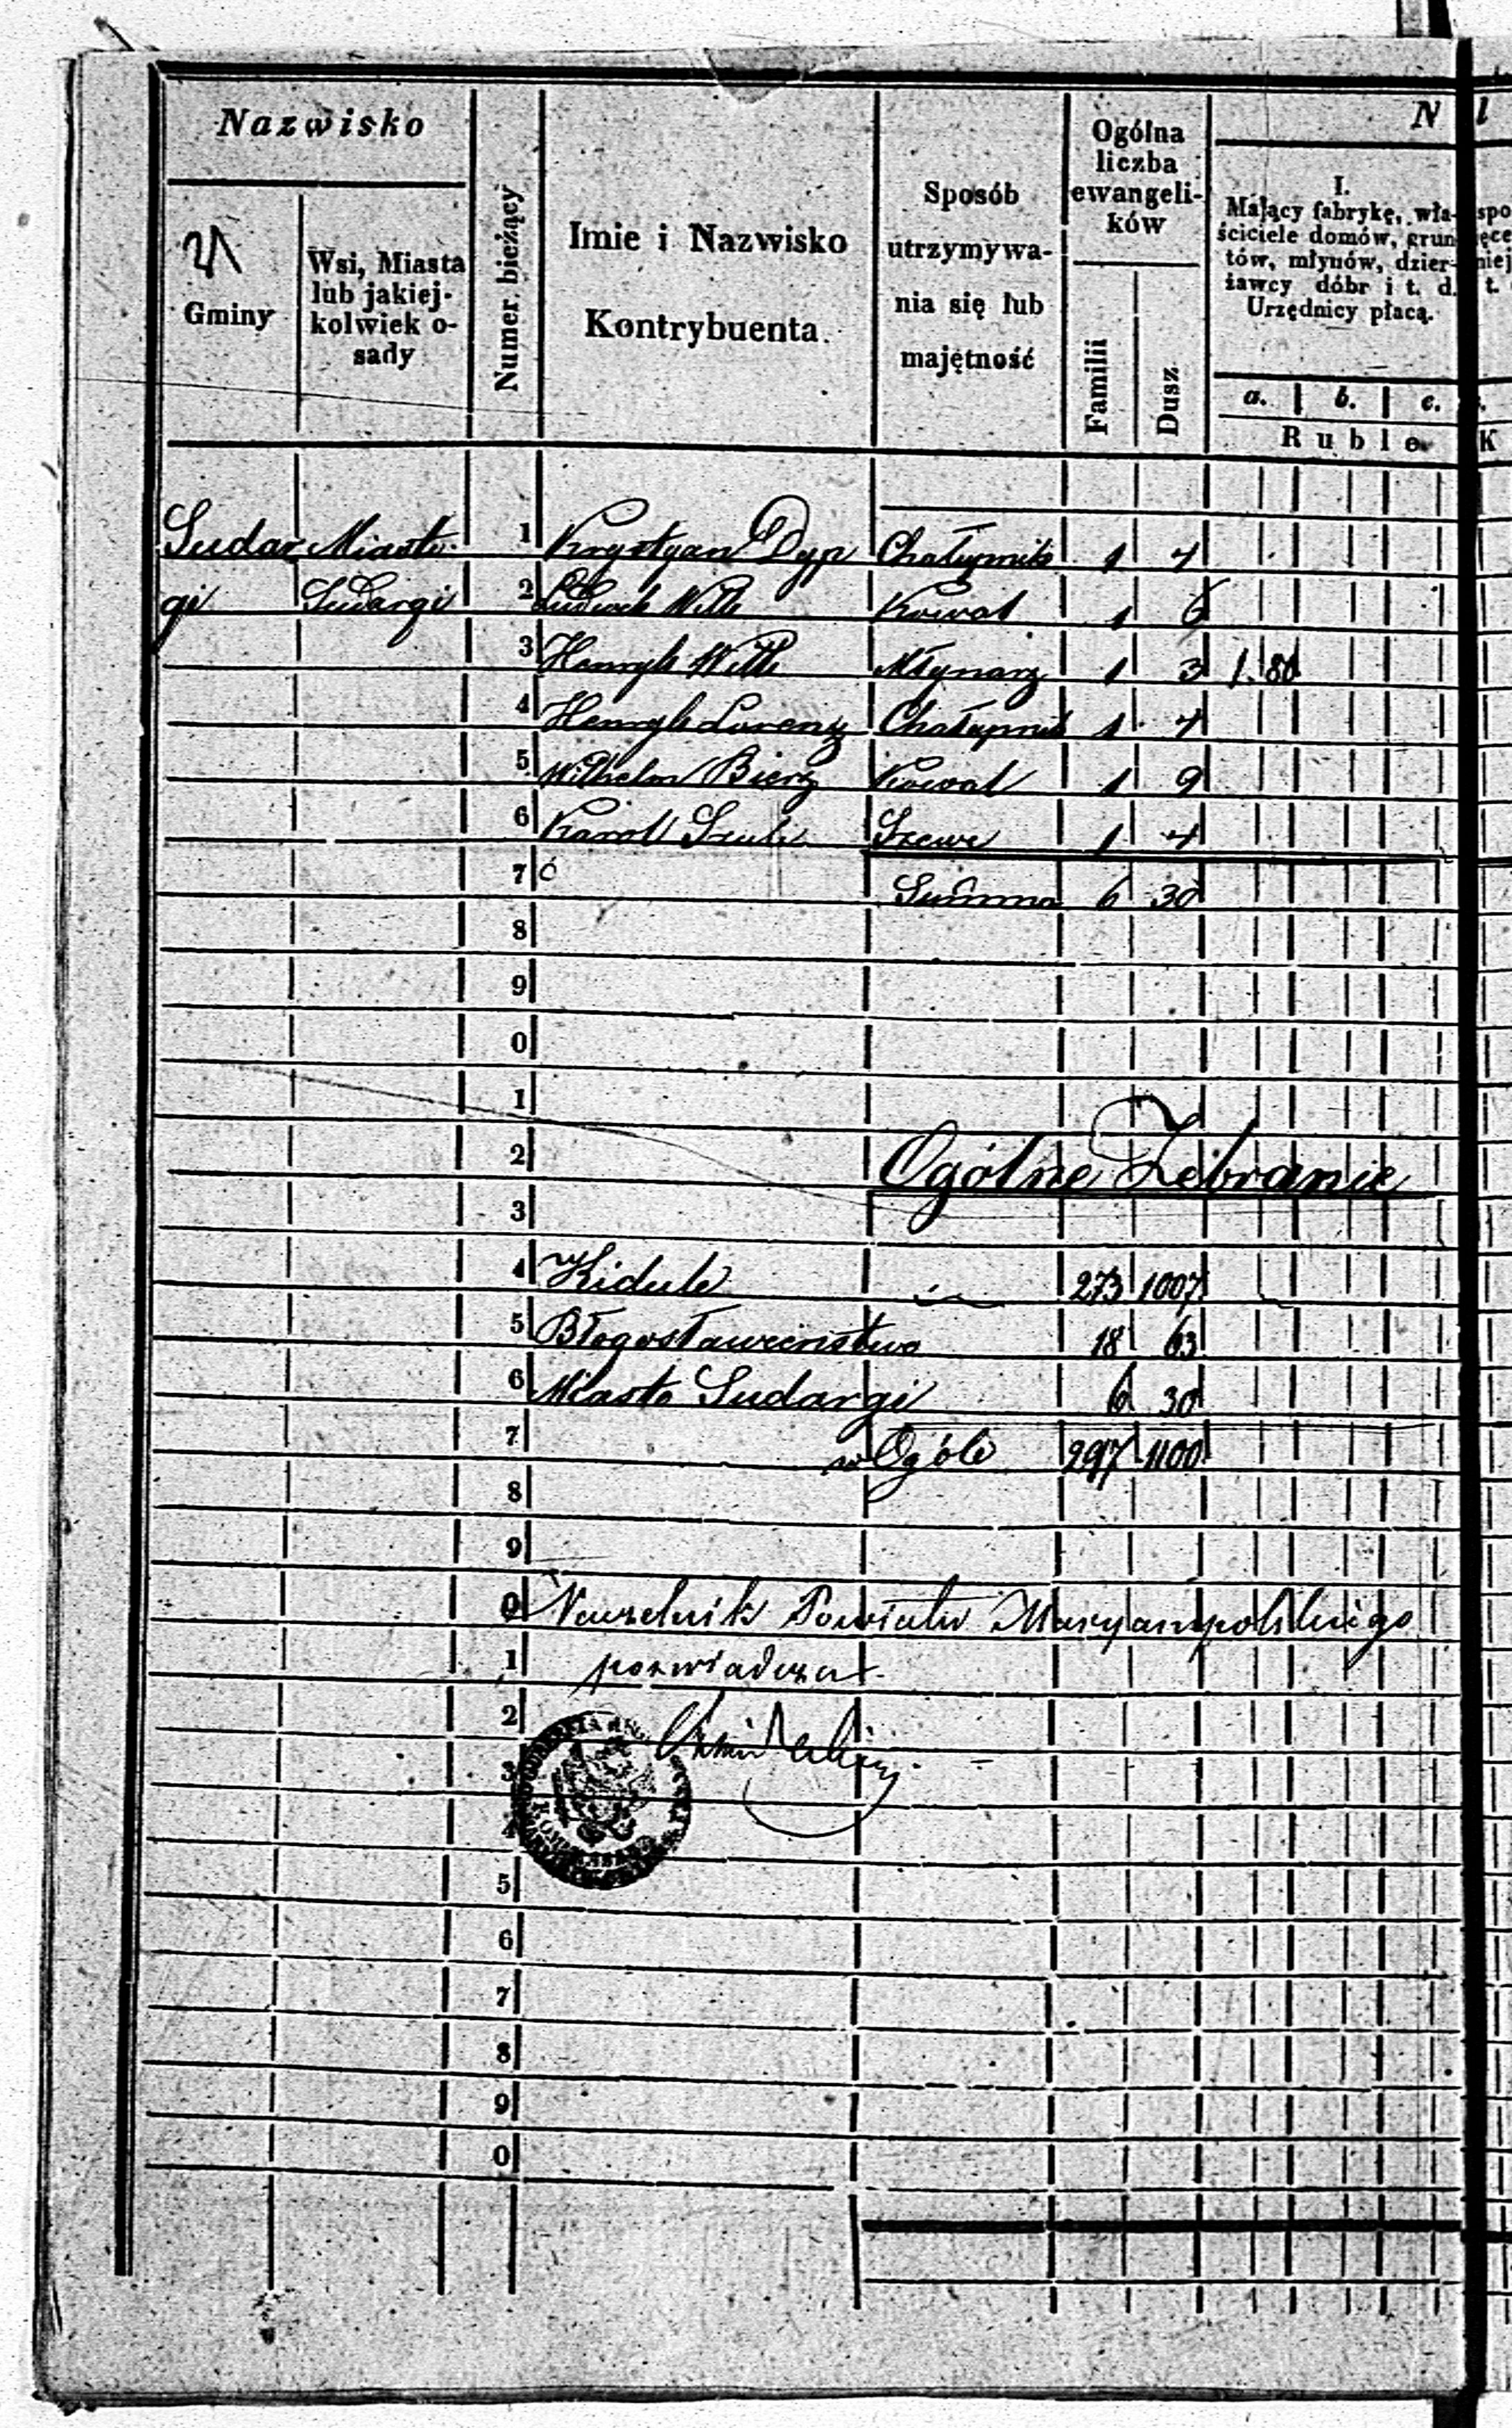 Nazwisko
Gminy
Wsi, Miasta
lub jakiej-
kolwiek o-
sady
Numer bieżący
Imie i Nazwisko
Kontrybuenta.
Sposób
utrzymywa-
nia się lub
majętność
Ogólna
liczba
ewangeli-
ków
Familii
Dusz
N
I.
Mający fabrykę, wła-
ściciele domów, grun-
tów, młynów, dzier-
żawcy dóbr i t. d.
Urzędnicy płacą.
a. b. c.
Ruble K
Sudar Miasto 1 Krystyan Dyp Chałupnik 1 4
gi Sudargi 2 Ludwik Witt Kowal 1 6
3 Henryk Witt Młynarz 1 3 1. 80
4 Henryk Lorenz Chałupnik 1 4
5 Wilhelm Bierz Kowal 1 9
6 Karol Szulc Szewc 1 4
7 Summa 6 30
8
9
0
1
2 Ogólne Zebranie
3
4 Kidule 273 1007
5 Błogosławieństwo 18 63
6 Miasto Sudargi 6 30
7 w Ogóle 297 1100
8
9
0 Naczelnik Powiatu Maryampolskiego
1 poswiadcza
2
3
4
5
6
7
8
9
0